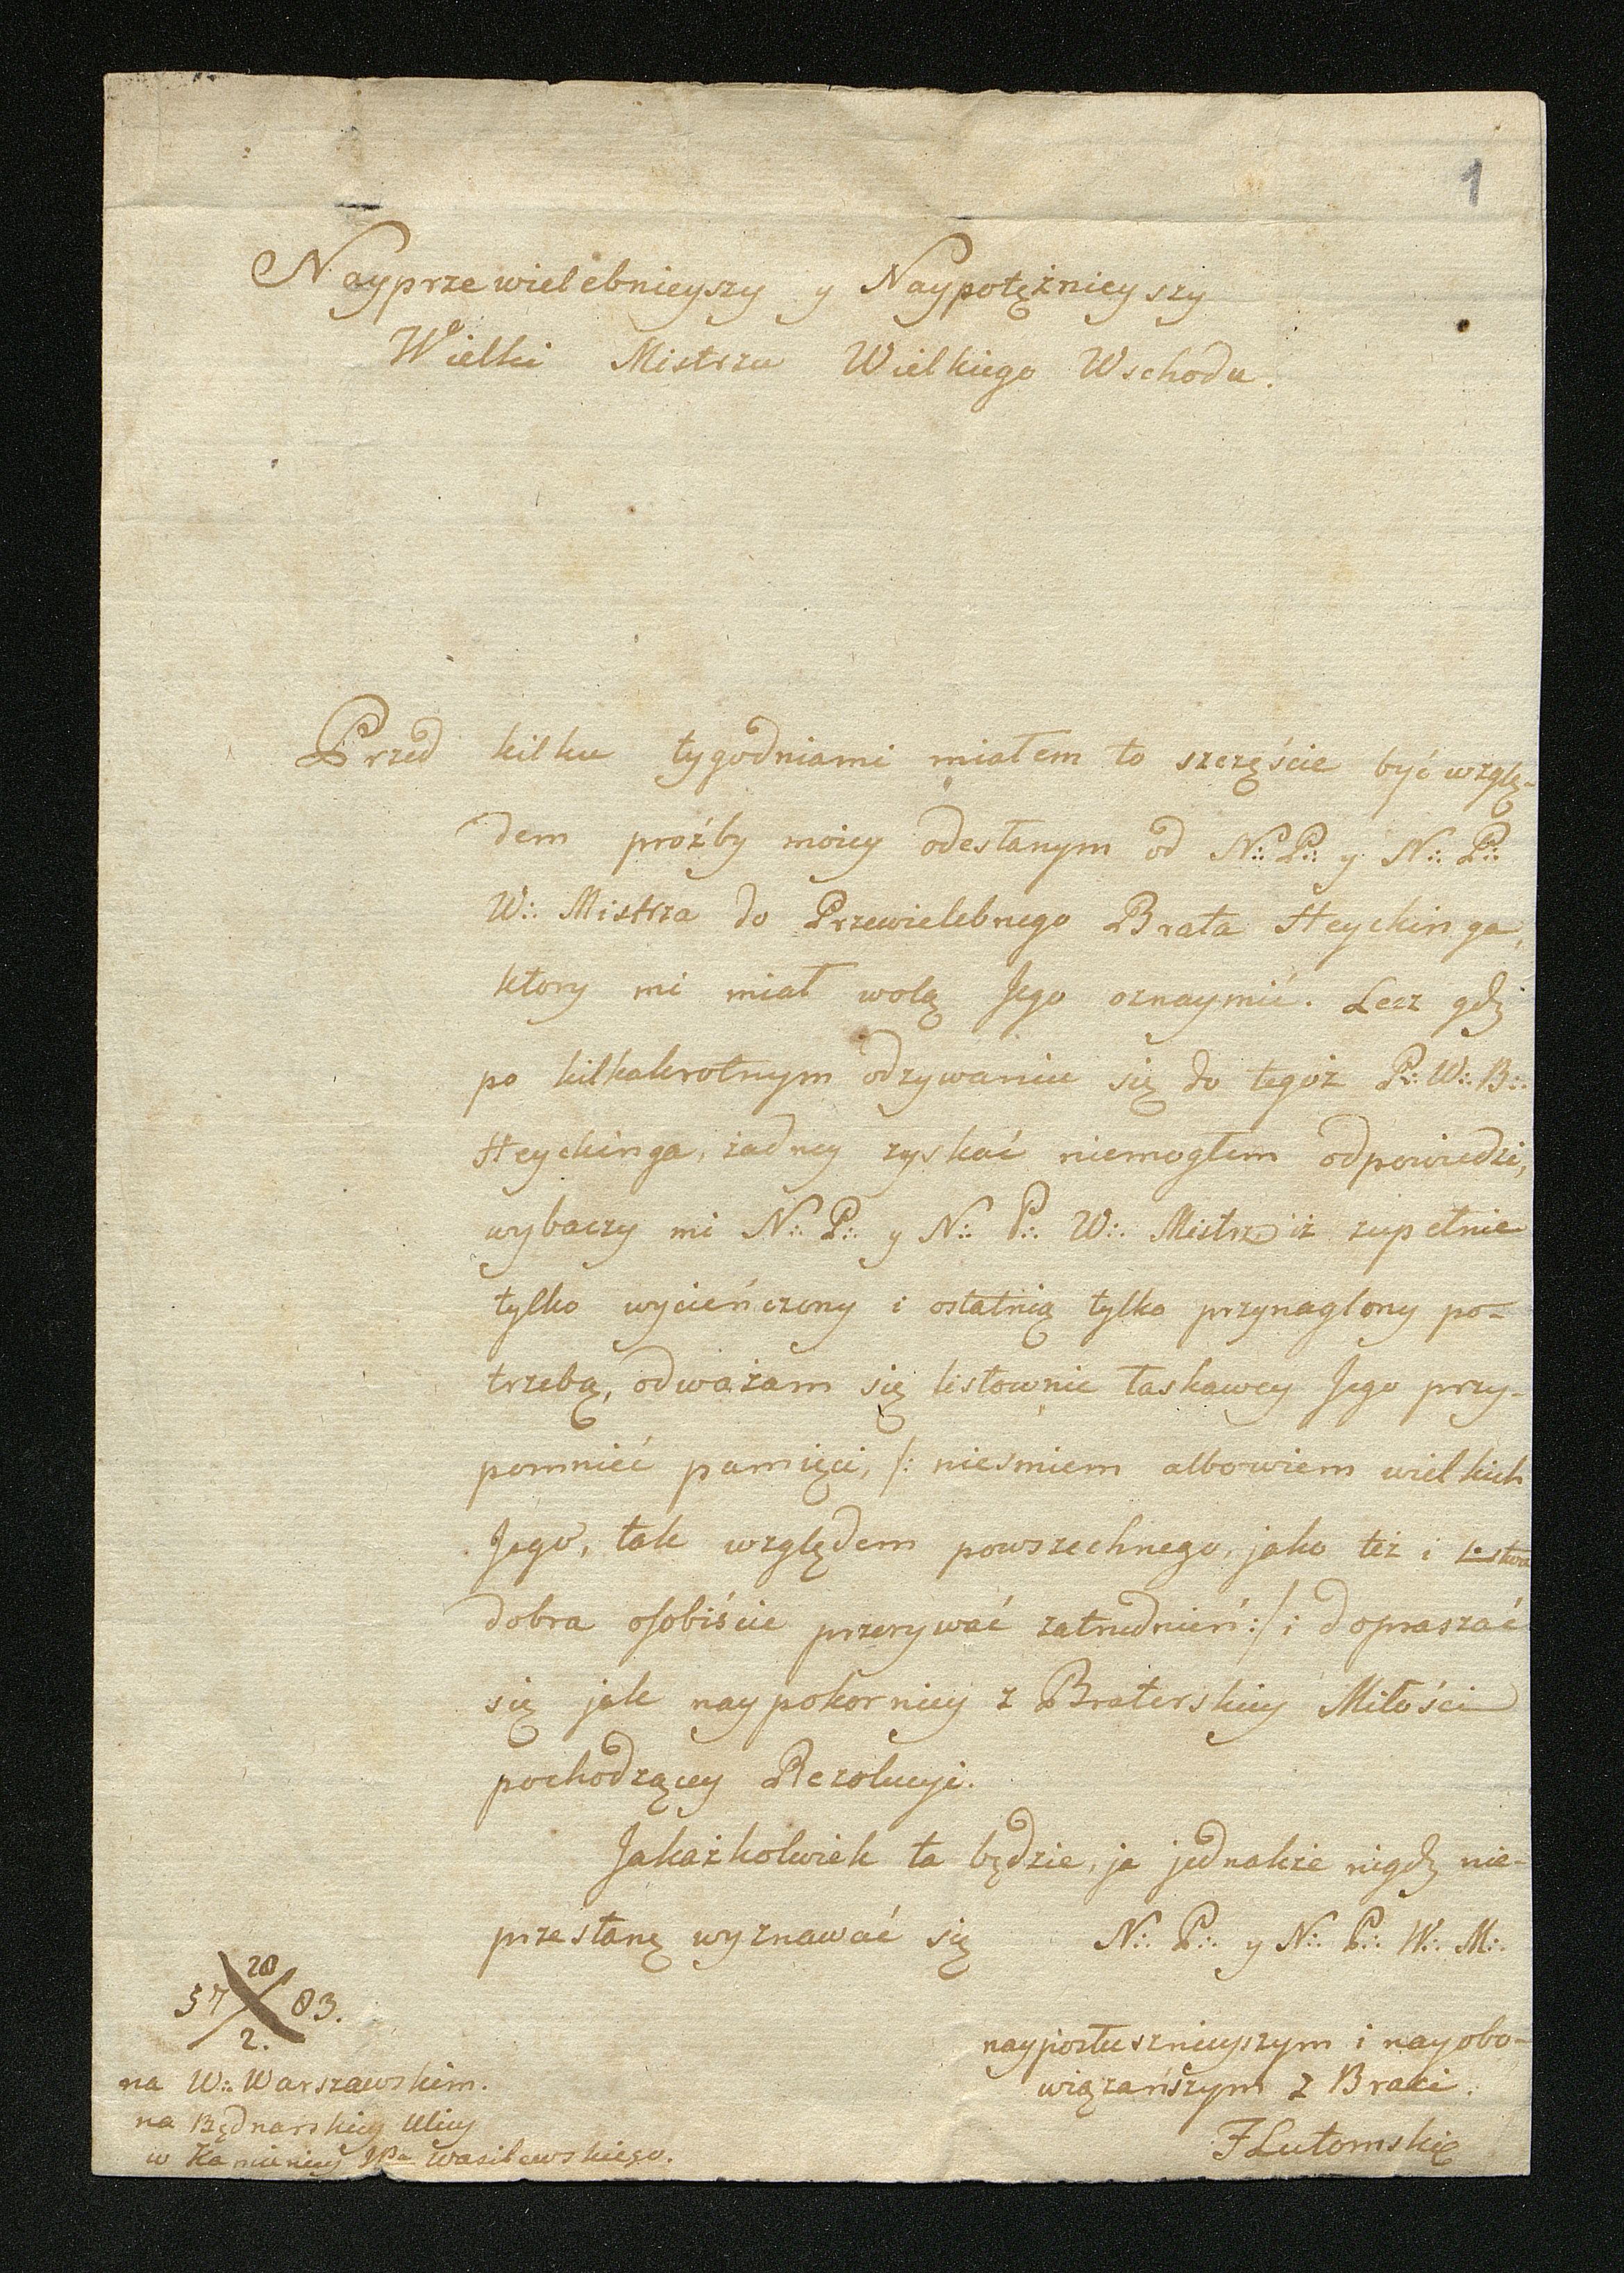 1
Nayprzewielebnieyszy y Naypotężnieyszy
Wielki Mistrzu Wielkiego Wschodu.
Przed kilku tygodniami miałem to szczęście być wzglę-
dem proźby moiey odesłanym od N∴ P∴ y N∴ P∴
W∴ Mistrza do Przewielebnego Brata Heyckinga,
ktory mi miał wolą Jego oznaymić. Lecz gdy
po kilkakrotnym odzywaniu się do tegoż P∴ W∴ B∴
Heyckinga, żadney zyskać niemogłem odpowiedzi,
wybaczy mi N∴ P∴ y N∴ P∴ W∴ Mistrz iż zupełnie
tylko wycieńczony i ostatnią tylko przynaglony po-
trzebą, odważam się listownie łaskawey Jego przy-
pomnieć pamięci, /: nieśmiem albowiem wielkich
Jego, tak względem powszechnego, jako też i
dobra osobiście przerywać zatrudnień :/ i dopraszać
się jak naypokorniey z Braterskiey Miłości
pochodzącey Rezolucyi.
Jakażkolwiek ta będzie, ja jednakże nigdy nie-
przestanę wyznawać się N∴ P∴ y N∴ P∴ W∴ M∴
nayposłusznieyszym i nayobo-
wiązańszym z Braci.
FLutomski
20
57 83.
2.
na W∴ Warszawskim.
na Będnarskiey Ulicy
w Kamienicy JPa Wasilewskiego.